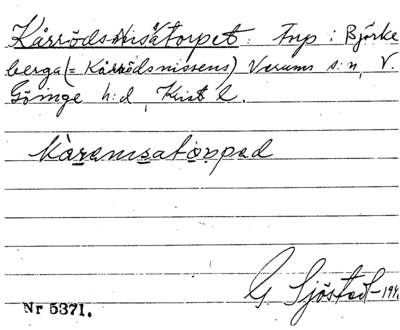 Kårröds-Nisatorpet: Tnp: Björke
berga (= Kårrödsnissens) Verums s:n, V.
Göinge h:d, Krist l.
G. Sjöstedt-194
Nr 5371.